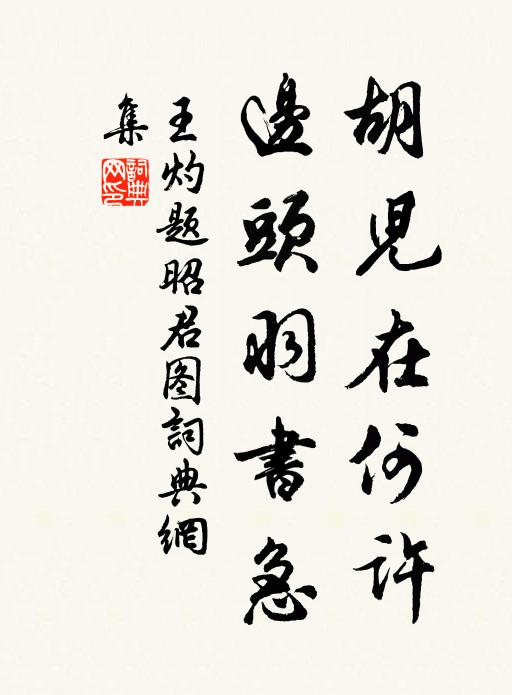 胡児在何許
邊頭羽書急
王灼題昭君图詞典網
集
詞典網印